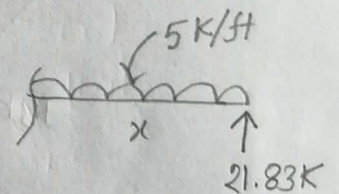 5 K/ft
x
21.83K